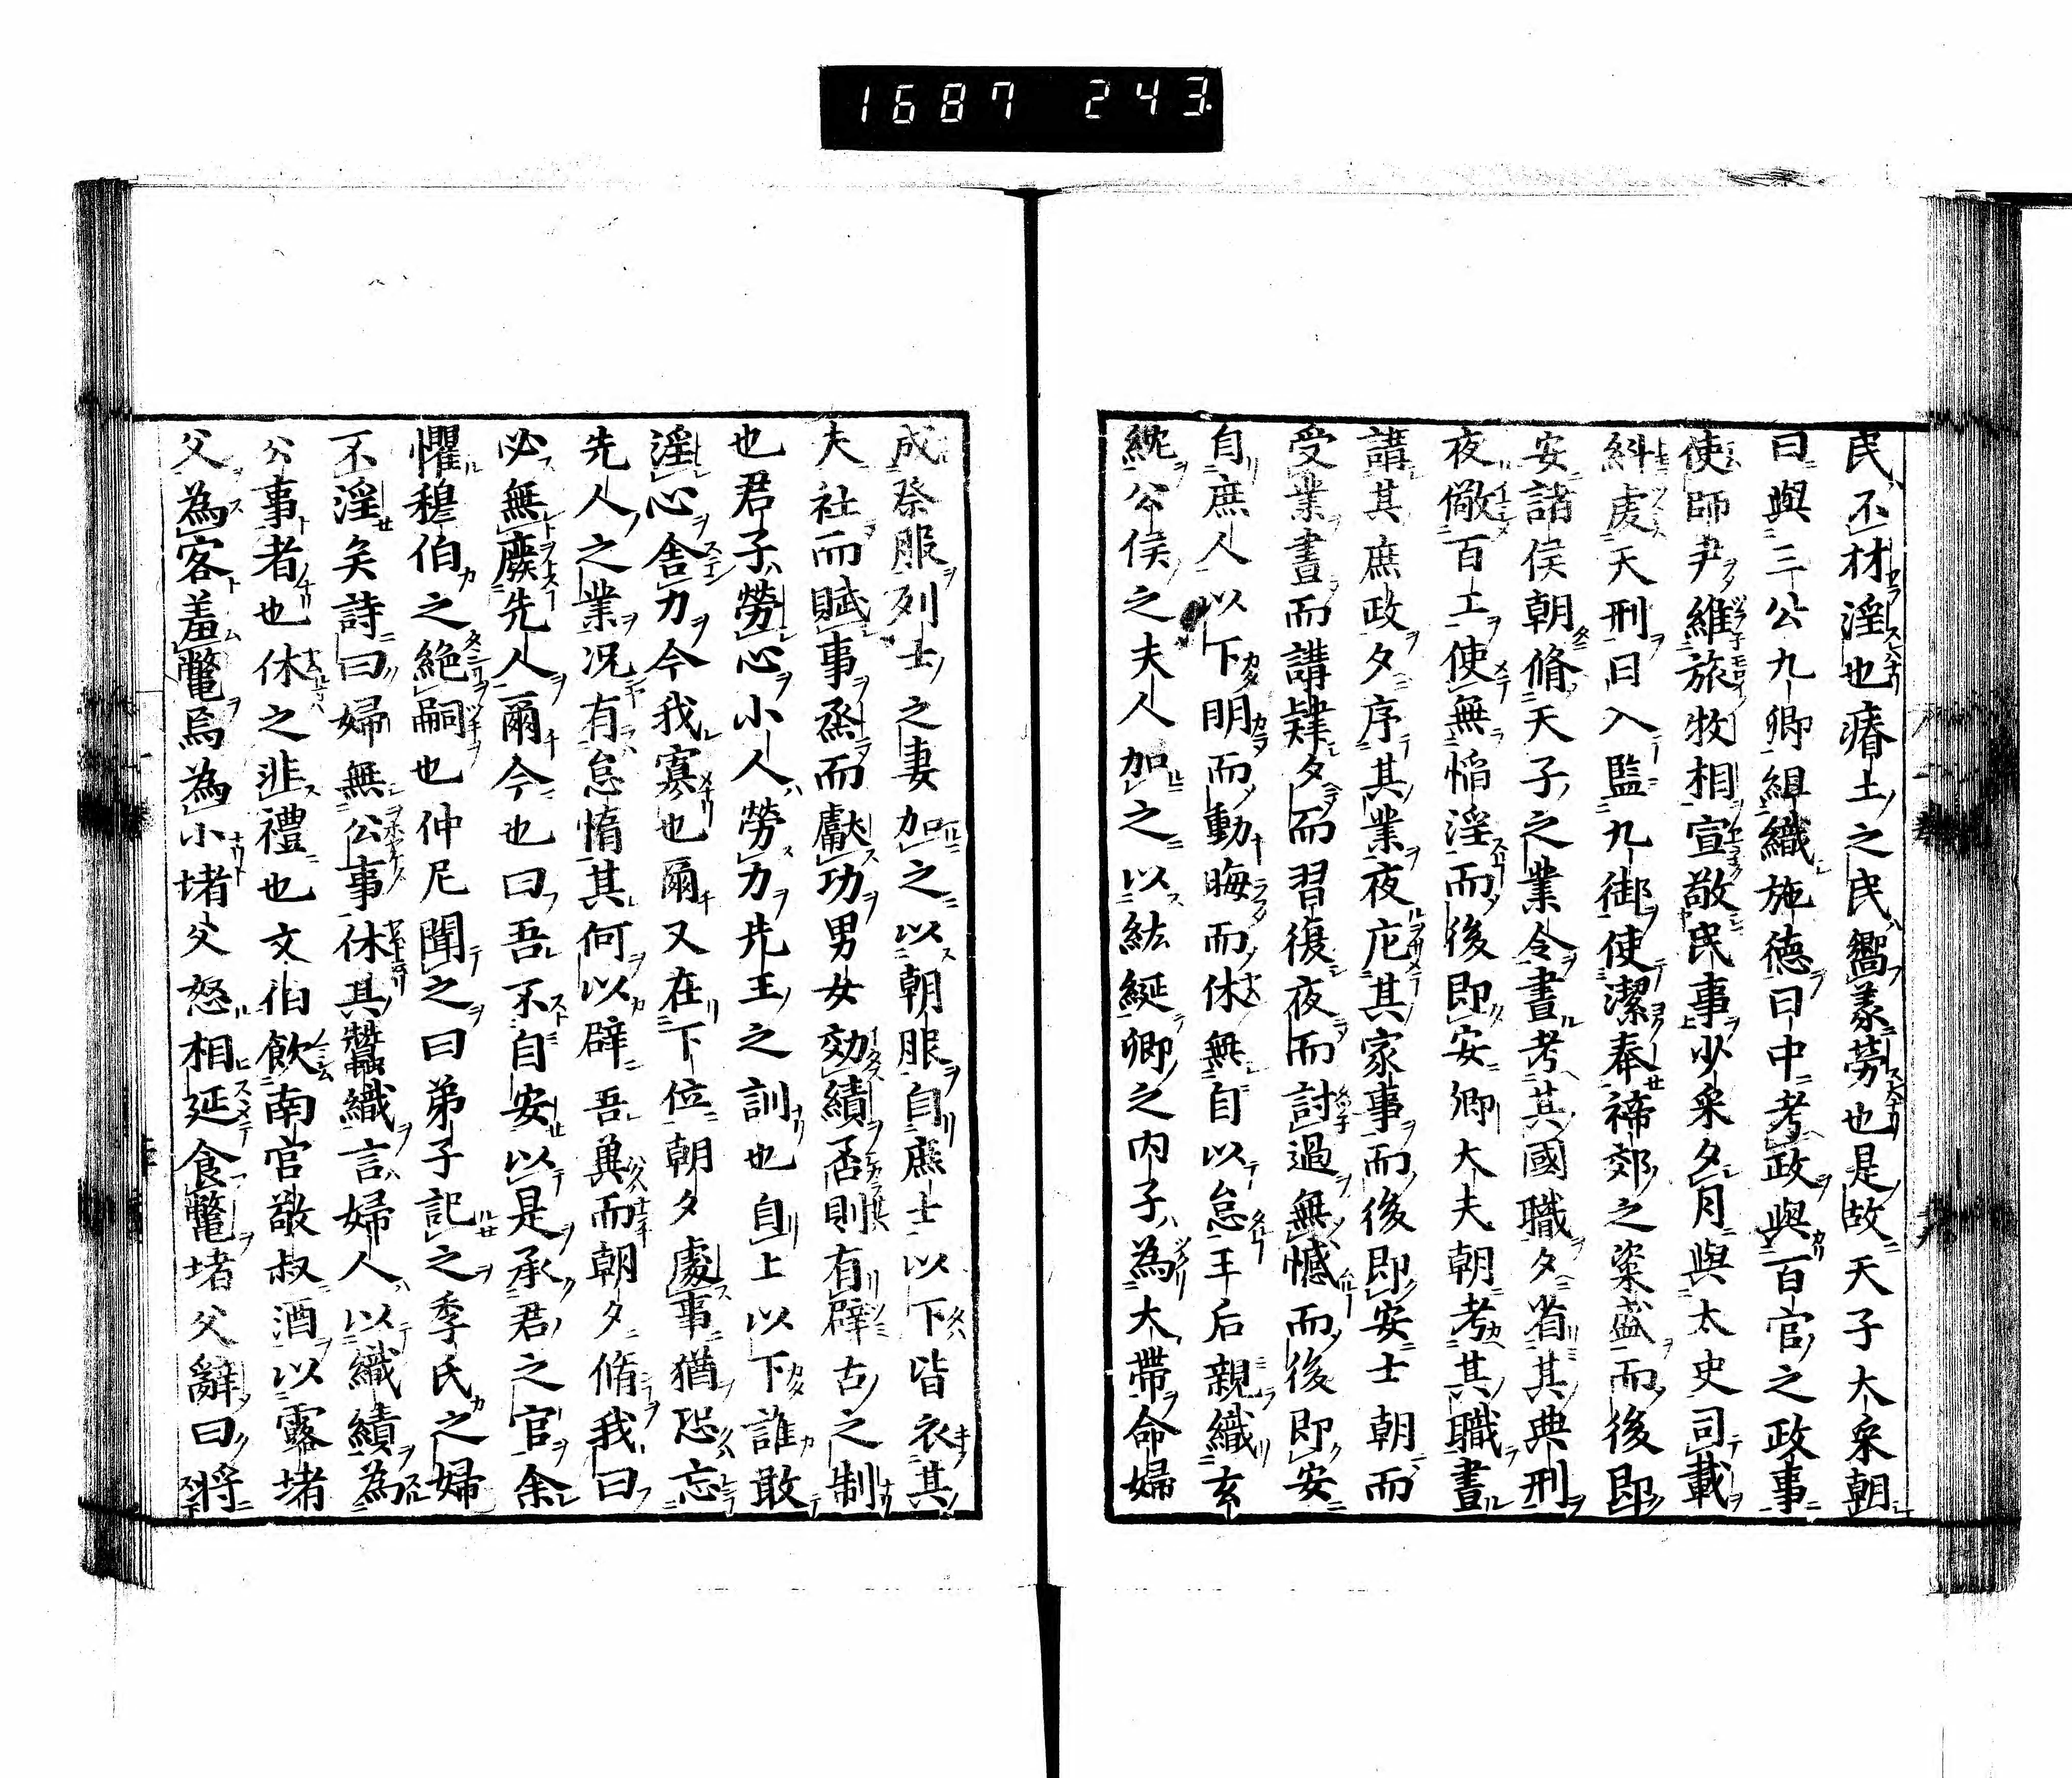 1687 243
民不材淫也瘠土之民嚮義勞也是故天子大采朝
日與三公九卿組織施徳日中考政與百官之政事
使師尹維旅牧相宣敬民事少采夕月與太史司載
糾虔天刑日入監九御使潔奉禘郊之粢盛而後即
安諸侯朝脩天子之業令晝考其國職夕省其典刑
夜儆百工使無慆淫而後即安卿大夫朝考其職晝
講其庶政夕序其業夜庀其家事而後即安士朝而
受業晝而講肄夕而習復夜而討過無憾而後即安
自庶人以下明而動晦而休無自以怠王后親織玄
紞公侯之夫人加之以紘綖卿之内子為大帶命婦
成祭服列士之妻加之以朝服自庶士以下皆衣其
夫社而賦事烝而獻功男女効績否則有辟古之制
也君子勞心小人勞力先王之訓也自上以下誰敢
淫心舎力今我寡也爾又在下位朝夕處事猶恐忘
先人之業况有怠惰其何以辟吾兾而朝夕脩我曰
必無廢先人爾今也曰吾不自安以是承君之官余
懼穆伯之絶嗣也仲尼聞之曰弟子記之季氏之婦
不淫矣詩曰婦無公事休其蠶織言婦人以織績為
公事者也休之非禮也文伯飲南宮敬叔酒以露堵
父為客羞鼈焉為小堵父怒相延食鼈堵父辭曰将